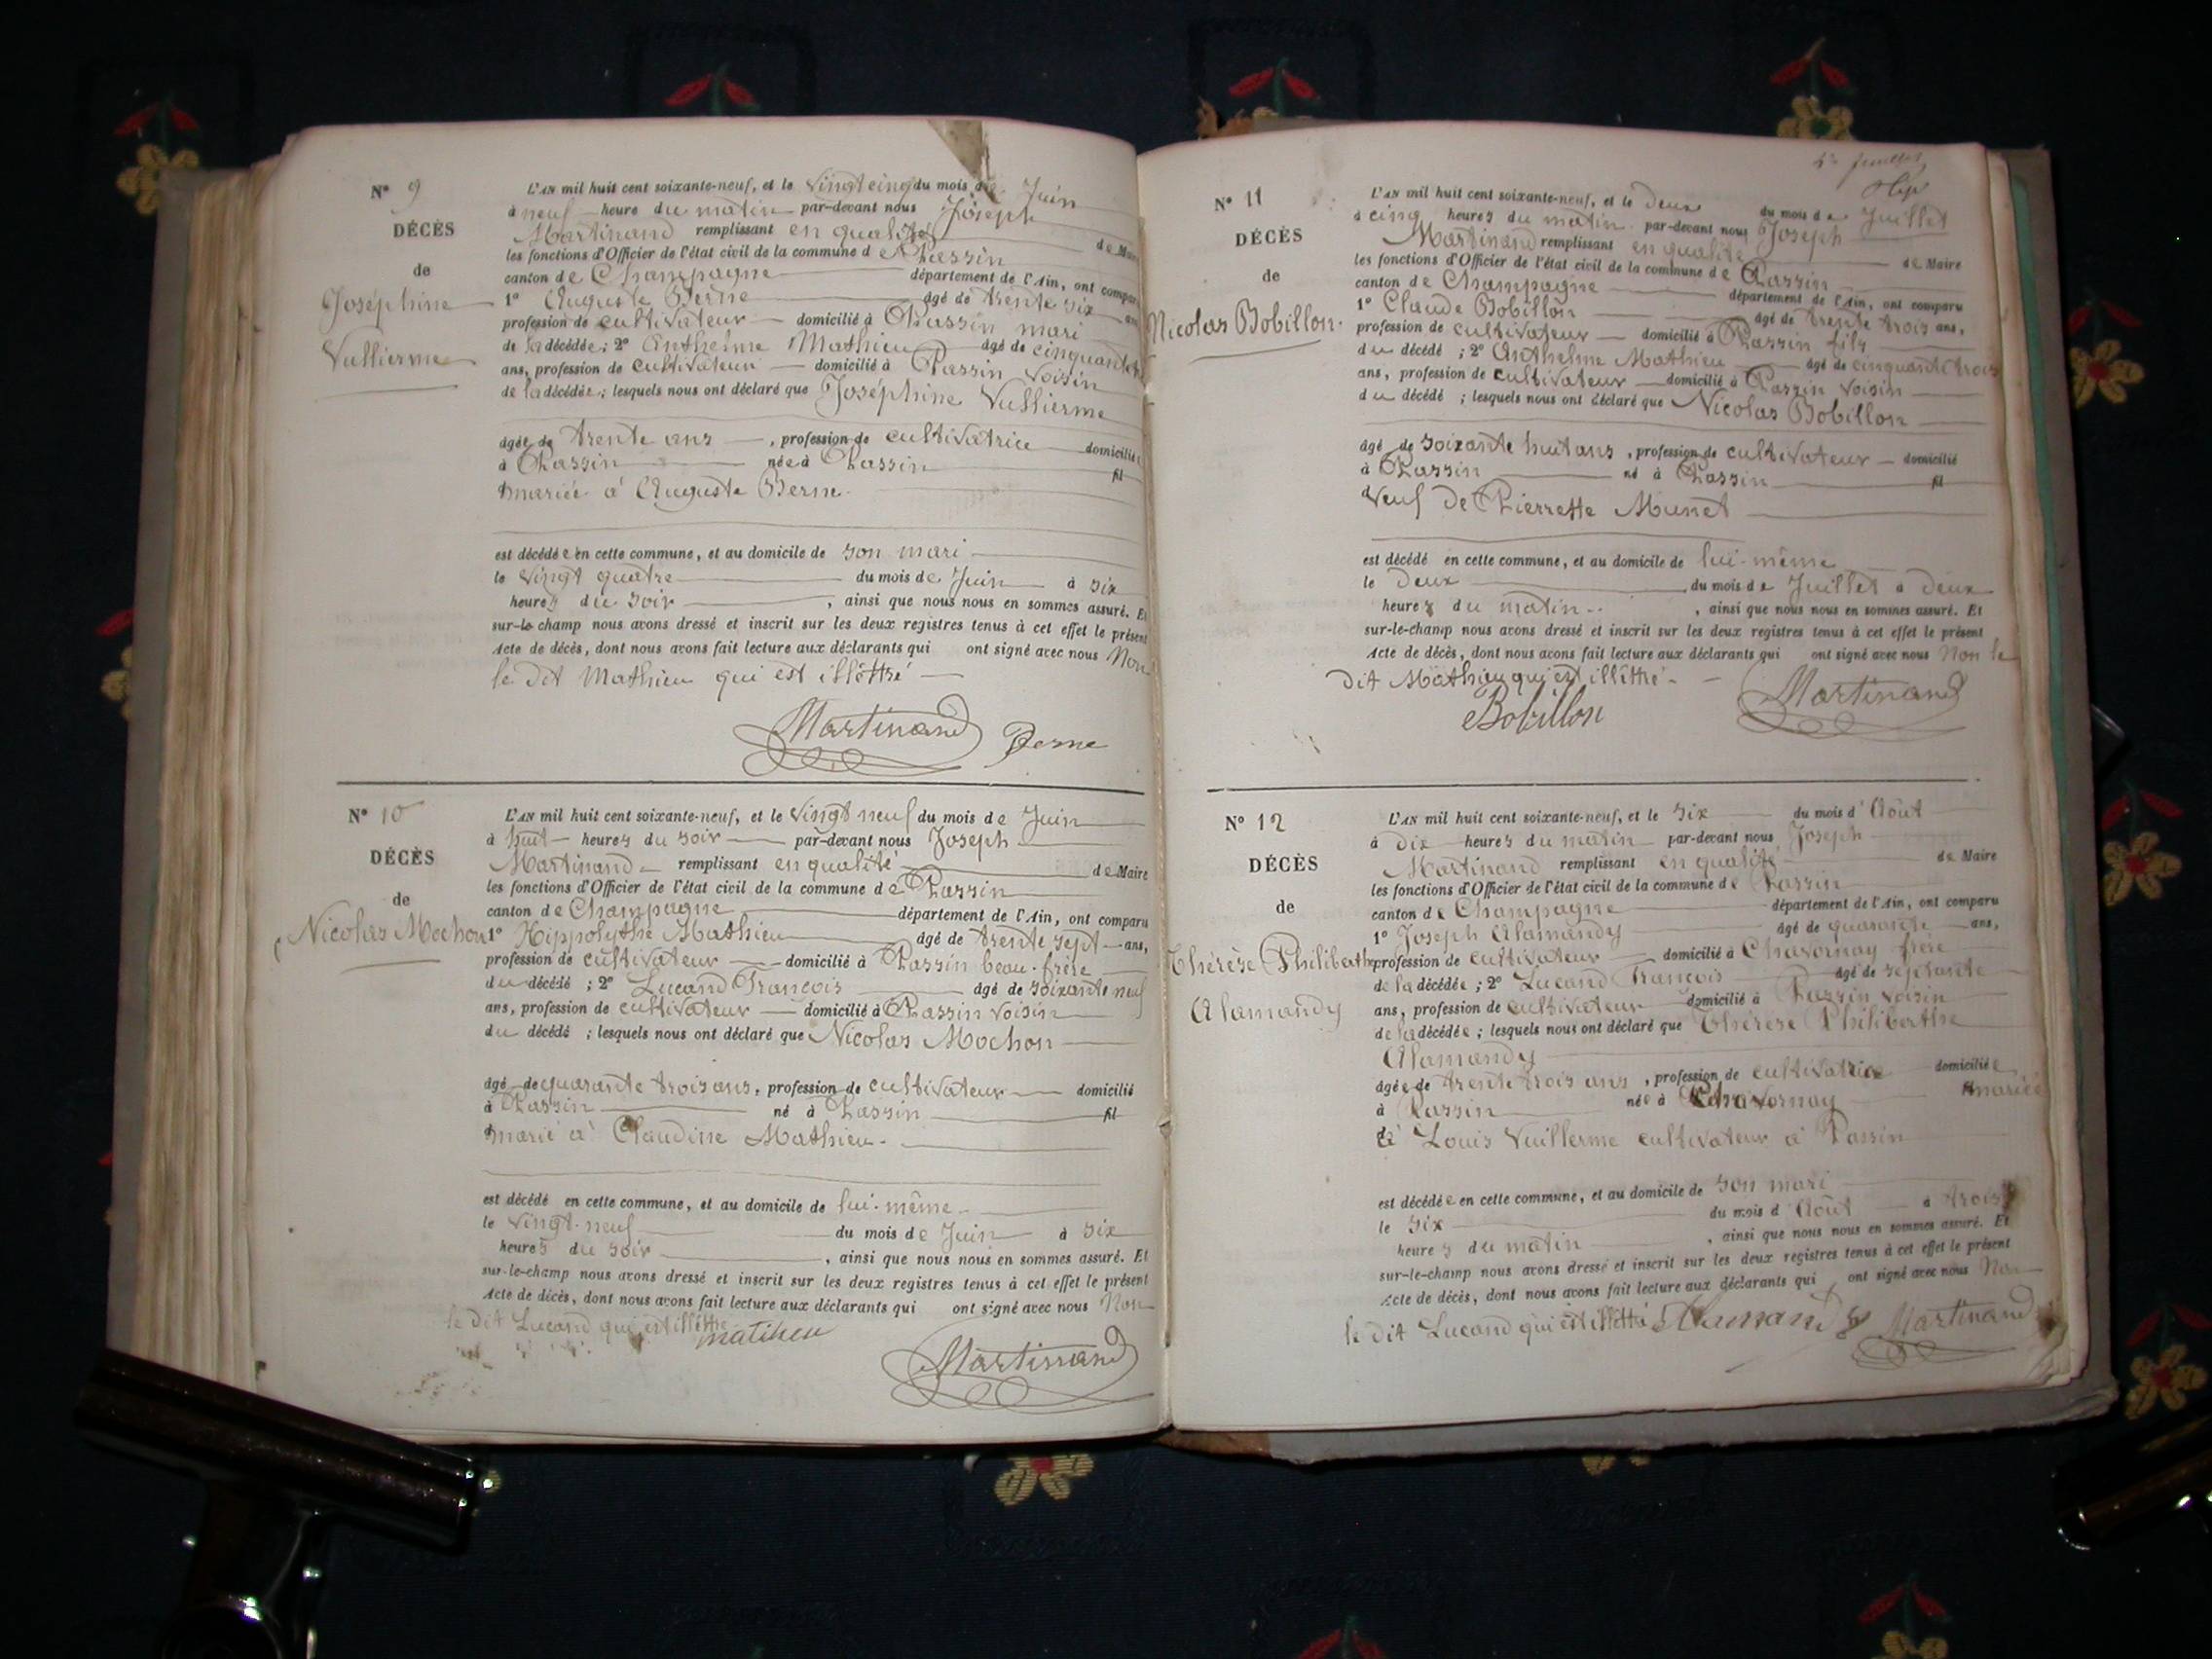 N° 9
DÉCÈS
de
Joséphine
Vullierme
L'AN mil huit cent soixante-neuf, et le vingt cinq du mois de Juin
à neuf heure du matin par-devant nous Joseph
Martinand remplissant en qualité de Maire
les fonctions d'Officier de l'état civil de la commune de Passin
canton de Champagne département de l'Ain, ont comparu
1° Auguste Berne âgé de trente six ans
profession de cultivateur domicilié à Passin mari
de la décédée; 2° Anthelme Mathieu âgé de cinquante
ans, profession de cultivateur domicilié à Passin voisin
de la décédée; lesquels nous ont déclaré que Joséphine Vullierme
âgée de trente ans, profession de cultivatrice domiciliée
à Passin née à Passin fil
mariée à Auguste Berne.
est décédée en cette commune, et au domicile de son mari
le vingt quatre du mois de Juin à six
heures du soir, ainsi que nous nous en sommes assuré. Et
sur-le champ nous avons dressé et inscrit sur les deux registres tenus à cet effet le présent
Acte de décès, dont nous avons fait lecture aux déclarants qui ont signé avec nous Non
le dit Mathieu qui est illêttré
Martinand Berne
N° 10
DÉCÈS
de
Nicolas Mochon
L'AN mil huit cent soixante-neuf, et le vingt neuf du mois de Juin
à huit heures du soir par-devant nous Joseph
Martinand remplissant en qualité de Maire
les fonctions d'Officier de l'état civil de la commune de Passin
canton de Champagne département de l'Ain, ont comparu
1° Hippolythe Mathieu âgé de trente sept ans,
profession de cultivateur domicilié à Passin beau-frère
du décédé; 2° Lucand François âgé de soixante neuf
ans, profession de cultivateur domicilié à Passin voisin
du décédé; lesquels nous ont déclaré que Nicolas Mochon
âgé de quarante trois ans, profession de cultivateur domicilié
à Passin né à Passin fil
marié à Claudine Mathieu.
est décédé en cette commune, et au domicile de lui-même
le vingt-neuf du mois de Juin à six
heures du soir, ainsi que nous nous en sommes assuré. Et
sur-le-champ nous avons dressé et inscrit sur les deux registres tenus à cet effet le présent
Acte de décès, dont nous avons fait lecture aux déclarants qui ont signé avec nous Non
le dit Lucand qui est illêttré
mathieu
Martinand
N° 11
DÉCÈS
de
Nicolas Bobillon.
L'AN mil huit cent soixante-neuf, et le deux du mois de Juillet
à cinq heures du matin par-devant nous Joseph
Martinand remplissant en qualité de Maire
les fonctions d'Officier de l'état civil de la commune de Passin
canton de Champagne département de l'Ain, ont comparu
1° Claude Bobillon âgé de trente trois ans,
profession de cultivateur domicilié à Passin fils
du décédé; 2° Anthelme Mathieu âgé de cinquante trois
ans, profession de cultivateur domicilié à Passin voisin
du décédé; lesquels nous ont déclaré que Nicolas Bobillon
âgé de soixante huit ans, profession de cultivateur domicilié
à Passin né à Passin fil
veuf de Pierrette Munet
est décédé en cette commune, et au domicile de lui-même
le deux du mois de Juillet à deux
heures du matin, ainsi que nous nous en sommes assuré. Et
sur-le-champ nous avons dressé et inscrit sur les deux registres tenus à cet effet le présent
Acte de décès, dont nous avons fait lecture aux déclarants qui ont signé avec nous Non le
dit Mathieu qui est illêttré.
Bobillon Martinand
N° 12
DÉCÈS
de
Thérèse Philiberthe
Alamandy
L'AN mil huit cent soixante-neuf, et le six du mois d'Août
à dix heures du matin par-devant nous Joseph
Martinand remplissant en qualité de Maire
les fonctions d'Officier de l'état civil de la commune de Passin
canton de Champagne département de l'Ain, ont comparu
1° Joseph Alamandy âgé de quarante ans,
profession de cultivateur domicilié à Chavornay frère
de la décédée; 2° Lucand François âgé de septante
ans, profession de cultivateur domicilié à Passin voisin
de la décédée; lesquels nous ont déclaré que Thérèse Philiberthe
Alamandy
âgée de trente trois ans, profession de cultivatrice domiciliée
à Passin née à Chavornay mariée
à Louis Vuillerme cultivateur à Passin
est décédée en cette commune, et au domicile de son mari
le six du mois d'Août à trois
heures du matin, ainsi que nous nous en sommes assuré. Et
sur-le-champ nous avons dressé et inscrit sur les deux registres tenus à cet effet le présent
Acte de décès, dont nous avons fait lecture aux déclarants qui ont signé avec nous Non
le dit Lucand qui est illêttré Alamandy Martinand